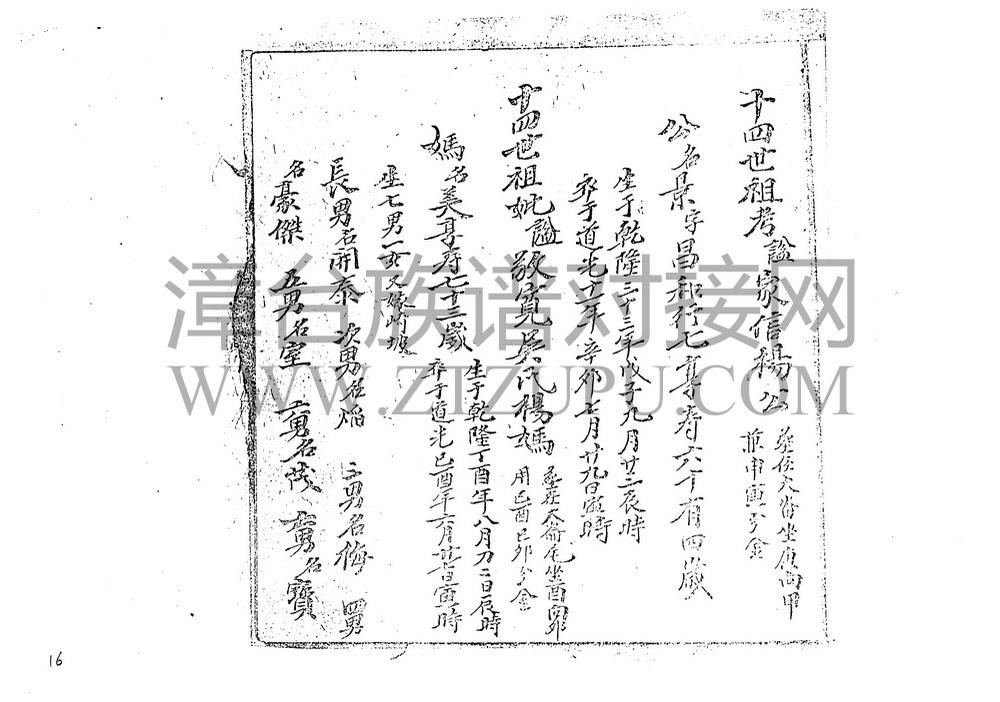 十四世祖考諡家信楊公
葬在大崙坐庚向甲
兼申寅分金
公名景字昌和行七享壽六十有四歲
生于乾隆三十三年戊子九月廿二辰時
卒于道光十一年辛卯七月廿九日寅時
十四世祖妣諡敬寬吳氏楊媽
葬在大崙尾坐酉向卯
用己酉己卯分金
媽名美享壽七十三歲
生于乾隆丁酉年八月初二日辰時
卒于道光己酉年六月廿七日寅時
生七男一女又
長男名開泰 次男名焰 三男名梅 四男
名豪傑 五男名室 六男名茂 七男名寶
漳台族谱对接网
WWW.ZTZUPU.COM
16